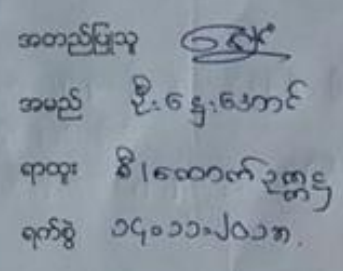 အတည်ပြုသူ
အမည် ဦးဌေးအောင်
ရာထူး စီ/ထောက်ဥက္ကဋ္ဌ
ရက်စွဲ ၁၄.၁၁.၂၀၁၈.